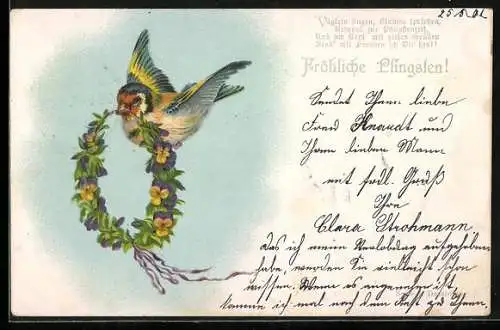 25.5.01
Vöglein singen, Blumen sprießen,
Überall zur Pfingstenzeit,
Und die Karte mit vielen Grüßen
Send' mit Freuden ich Dir heut!
Fröhliche Pfingsten!
Sendet Ihnen liebe
Frau Knaudt und
Ihrem lieben Mann
mit frdl. Gruß
Ihre
Clara Strohmann
Das ich meine Verlobung aufgehoben
habe, werden Sie vielleicht schon
wissen. Wenn es angenehm ist
komme ich mal nach dem Fest zu Ihnen.